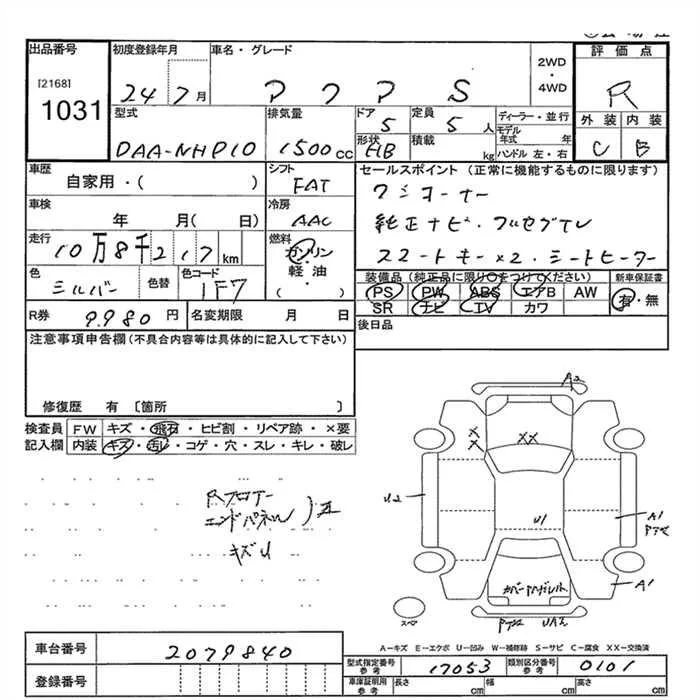 出品番号
[2168]
1031
初度登録年月
24 7月
車名・グレード
アクア S
2WD
・
4WD
評価点
R
外装 内装
C B
型式
DAA-NHP10
排気量
1500cc
ドア
5
定員
5人
形状
HB
積載
kg
ディーラー・並行
モデル
年式 年
ハンドル 左・右
車歴
自家用・( )
車検
年 月( 日)
走行
10万8千217km
色
シルバー
色替
色コード
1F7
シフト
FAT
冷房
AAC
燃料
ガソリン
・
軽油
( )
セールスポイント (正常に機能するものに限ります)
ワンオーナー
純正ナビ・フルセグTV
スマートキー×2・シートヒーター
装備品(純正品に限り○をつけてください)
新車保証書
PS PW ABS エアB AW
有・無
SR ナビ TV カワ
R券
9980円
名変期限 月 日
後日品
注意事項申告欄(不具合内容等は具体的に記入して下さい)
修復歴 有 〔箇所 〕
検査員 FW キズ・飛石・ヒビ割・リペア跡・×要
記入欄 内装 キズ・汚レ・コゲ・穴・スレ・キレ・破レ
Rフロアー
エンドパネル
キズU
A2
X
X
XX
U2
U1
A1
A1
スペア
UA2
A−キズ E−エクボ U−凹み W−補修跡 S−サビ C−腐食 XX−交換済
車台番号
2079840
登録番号
型式指定番号
参考
17053
類別区分番号
参考
0101
車庫証明用
参考
長さ cm
幅 cm
高さ cm